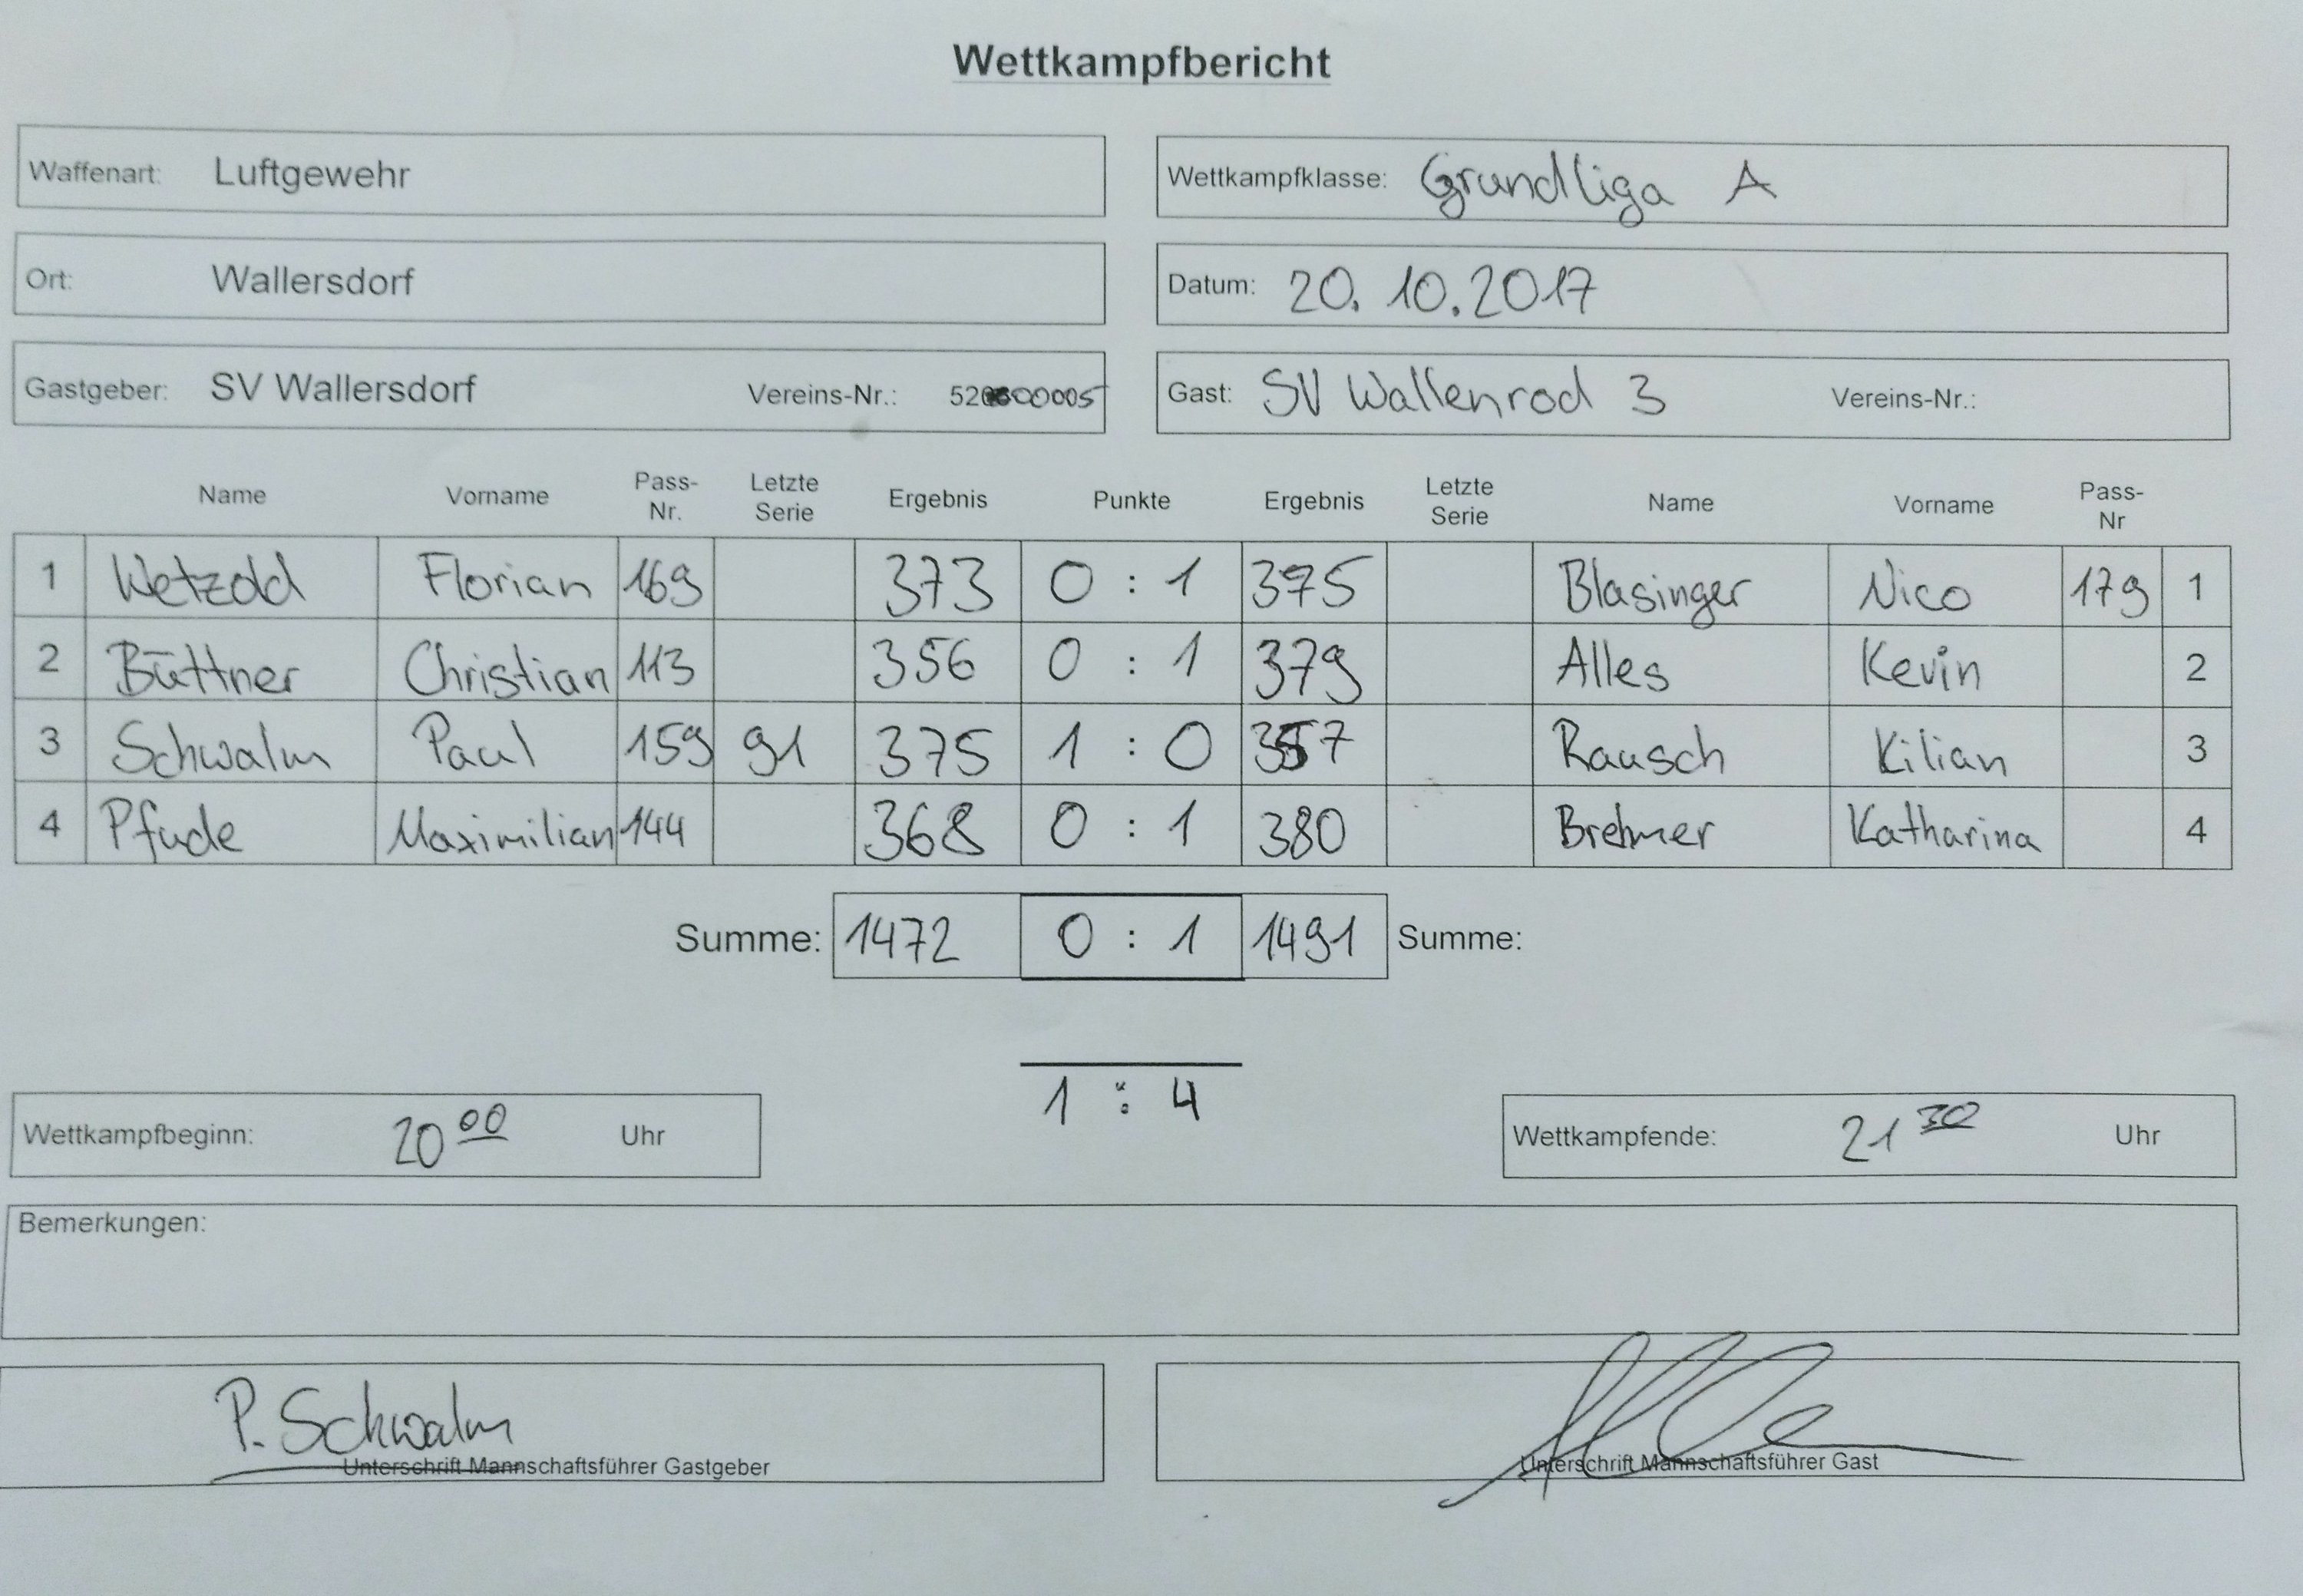 Wettkampfbericht
Waffenart: Luftgewehr Wettkampfklasse: Grundliga A
Ort: Wallersdorf Datum: 20.10.2017
Gastgeber: SV Wallersdorf Vereins-Nr.: Gast: SV Wallenrod 3 Vereins-Nr.:
Name Vorname Pass-Nr. Letzte Serie Ergebnis Punkte Ergebnis Letzte Serie Name Vorname Pass-Nr
1 Wetzold Florian 169 373 0 : 1 375 Blasinger Nico 179 1
2 Büttner Christian 113 356 0 : 1 379 Alles Kevin 2
3 Schwalm Paul 159 91 375 1 : 0 357 Rausch Kilian 3
4 Pfude Maximilian 144 368 0 : 1 380 Brehmer Katharina 4
Summe: 1472 0 : 1 1491 Summe:
1 : 4
Wettkampfbeginn: 20 00 Uhr Wettkampfende: 21 30 Uhr
Bemerkungen:
P. Schwalm
Unterschrift Mannschaftsführer Gastgeber Unterschrift Mannschaftsführer Gast